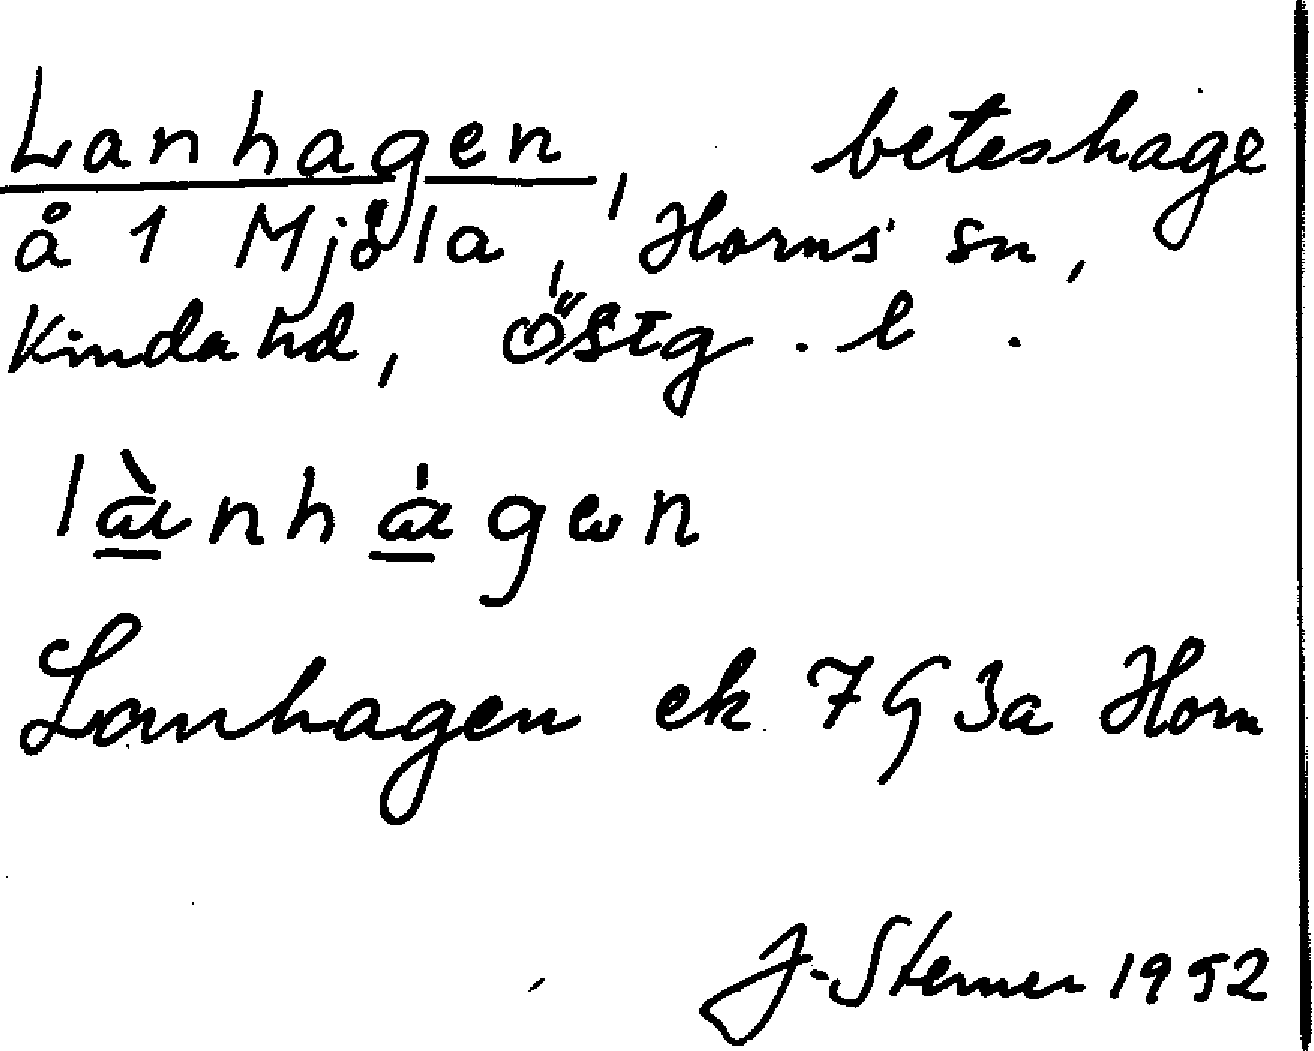 Lanhagen, beteshage
å 1 Mjöla, Horns sn,
Kinda hd, Östg. l.
lànhágen
Lanhagen ek 7G3a Horn
J. Sterner 1952